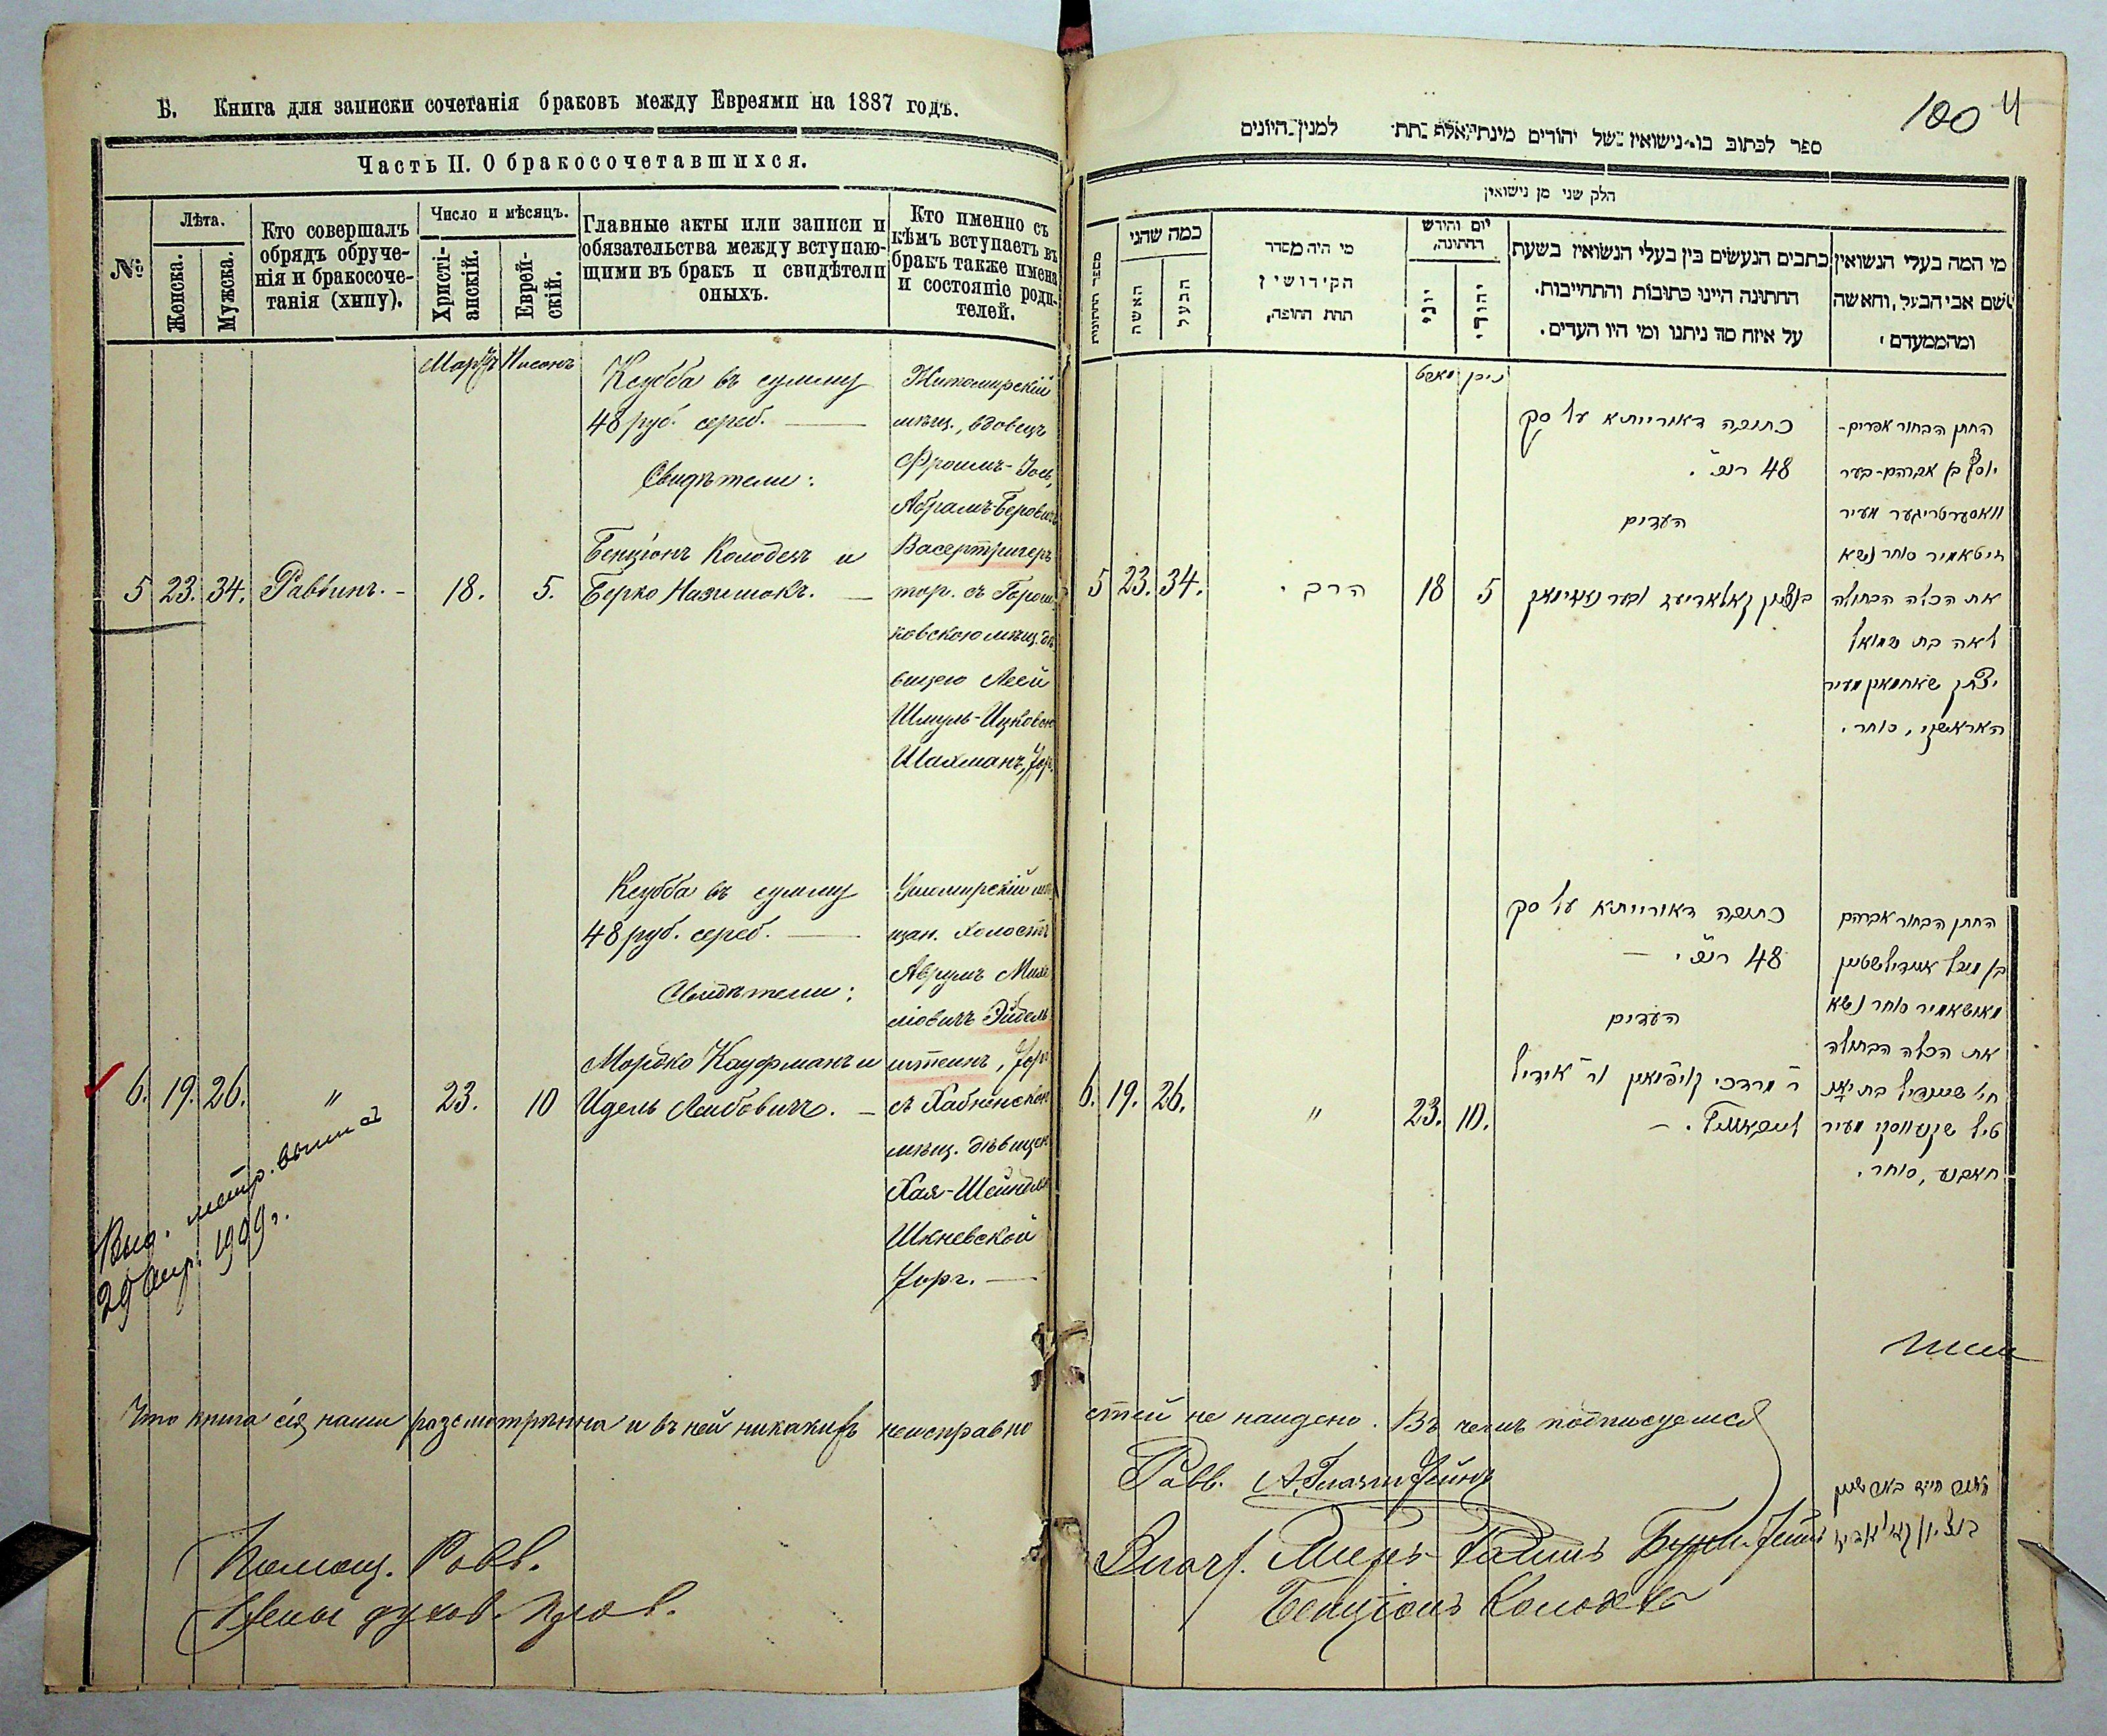 Б. Книга для записки сочетанія браковъ между Евреями на 1887 годъ.
Часть II. О бракосочетавшихся.
№
Лѣта.
Женска.
Мужска.
Кто совершалъ
обрядъ обруче-
нія и бракосоче-
танія (хипу).
Число и мѣсяцъ.
Христі-
анскій.
Еврей-
скій.
Главные акты или записи и
обязательства между вступаю-
щими въ бракъ и свидѣтели
оныхъ.
Кто именно съ
кѣмъ вступаетъ въ
бракъ также имена
и состояніе роди-
телей.
Мартъ Нисонъ
5 23. 34. Раввинъ. - 18. 5.
Ксубба въ сумму
48 руб. сереб. —
Свидѣтели:
Бенціонъ Колоденъ и
Берко Назимокъ. —
Житомирскій
мѣщ., вдовецъ
Фроимъ-Іось,
Абрамъ-Беровичъ
Васертригеръ
тор. съ Горош-
ковскою мѣщ. дѣ-
вицею Леей
Шмуль-Ицковою
Шахманъ, Торг.
6. 19. 26. " 23. 10
Ксубба въ сумму
48 руб. сереб. —
Свидѣтели:
Мордко Кауфманъ и
Идель Лейбовичъ. —
Ушомирскій мѣ-
щан. холостъ
Аврумъ Михе-
ліовичъ Эйдель-
штеинъ, Торг
съ Хабненскою
мѣщ. дѣвицею
Хая-Шейндля
Шкневской
Торг. —
Выд. метр. выпись
29 Апр. 1909 г.
Что книга сія нами разсмотрѣнна и въ ней никакихъ неисправно
Помощ. Равв.
Члены духов. прав.
100 4
ספר לכתוב בו נישואין של יהודים מינת אלף תת למנין היונים
חלק שני מן נישואין
מספר החתונות
כמה שהני
האשה
הבעל
מי היה מסדר
הקידושין
תחת החופה,
יום וחודש
החתונה,
יוני
יהודי
כתבים הנעשים בין בעלי הנשואין בשעת
החתונה היינו כתובות והתחייבות.
על איזה סך ניתנו ומי היו העדים.
מי המה בעלי הנשואין
ושם אבי הבעל, והאשה
ומהמעמדם.
מארט ניסן
5 23. 34. הרב. 18 5
כתובה דאורייתא על סק
48 רו״כ.
העדים
בנציון קאלאדיעז ובער נאזימאק
החתן הבחור אפרים-
יוסף בן אברהם-בער
וואסערטריגער מעיר
זיטאמיר סוחר נשא
את הכלה הבתולה
לאה בת שמואל
יצחק שאחמאן מעיר
האראשקי, סוחר.
6. 19. 26. " 23. 10.
כתובה דאורייתא על סק
48 רו״כ. —
העדים
ר׳ מרדכי קויפמאן ור׳ אידיל
לייבאוויץ. —
החתן הבחור אברהם
בן מיכל איידילשטיין
מאושאמיר סוחר נשא
את הכלה הבתולה
חי׳ שיינדיל בת
מעיר
חאבנע, סוחר.
стей не найдено. Въ чемъ подписуемся
Равв. А. Глазштейнъ
Бенціонъ Колоде